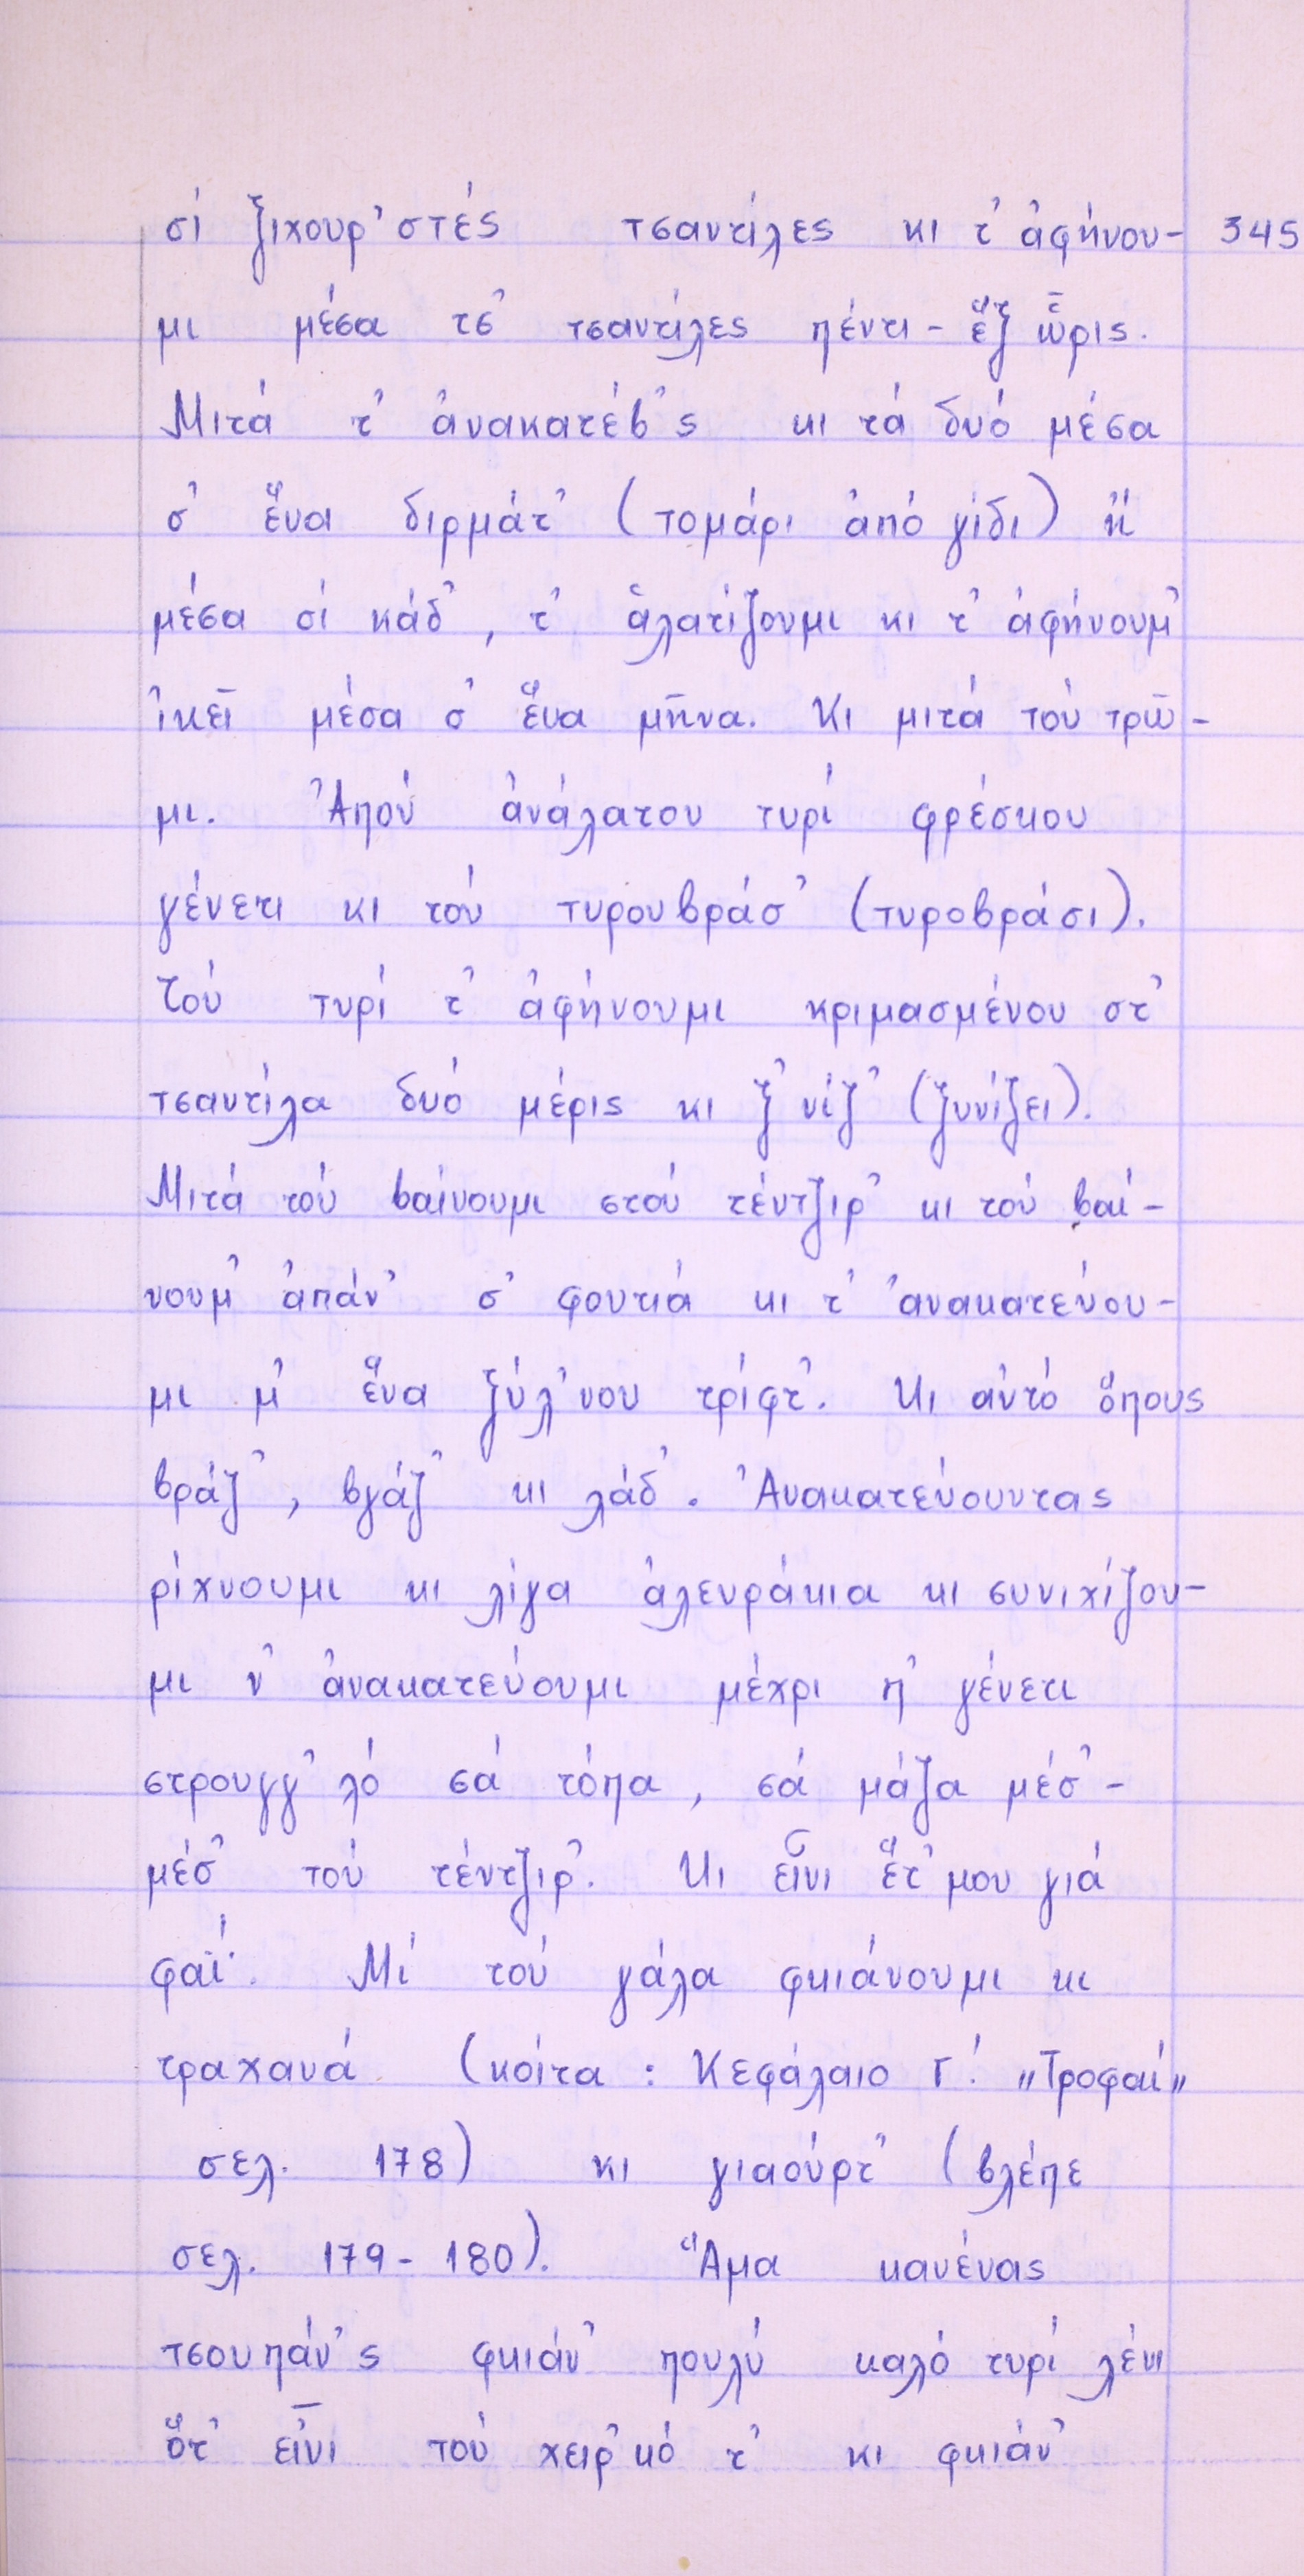 σί ξιχουρ'στές τσαντίλες κι τ' ἀφήνου- 345
μι μέσα τσ' τσαντίλες πέντι-ἕξ ὧρις.
Μιτά τ' ἀνακατέβ'ς κι τά δυό μέσα
σ' ἕνα διρμάτ' (τομάρι ἀπό γίδι) ἤ
μέσα σί κάδ', τ' ἁλατίζουμι κι τ' ἀφήνουμ'
ἰκεῖ μέσα σ' ἕνα μῆνα. Κι μιτά τού τρῶ-
μι. Ἀπού ἀνάλατου τυρί φρέσκου
γένετι κι τού τυρουβράσ' (τυροβράσι).
Τού τυρί τ' ἀφήνουμι κριμασμένου στ'
τσαντίλα δυό μέρις κι ξ'νίζ' (ξυνίζει).
Μιτά τού βαίνουμι στού τέντζιρ' κι τού βαί-
νουμ' ἀπάν' σ' φουτιά κι τ' ἀνακατεύου-
μι μ' ἕνα ξύλ'νου τρίφτ'. Κι αὐτό ὅπους
βράζ', βγάζ' κι λάδ'. Ἀνακατεύουντας
ρίχνουμι κι λίγα ἀλευράκια κι συνιχίζου-
μι ν' ἀνακατεύουμι μέχρι π' γένετι
στρουγγ'λό σά τόπα, σά μάζα μέσ'-
μέσ' τού τέντζιρ'. Κι εἶνι ἕτ'μου γιά
φαΐ. Μί τού γάλα φκιάνουμι κι
τραχανά (κοίτα : Κεφάλαιο Γ΄. "Τροφαί"
σελ. 178) κι γιαούρτ' (βλέπε
σελ. 179-180). Ἅμα κανένας
τσουπάν'ς φκιάν' πουλύ καλό τυρί λένι
ὅτ' εἶνι τού χειρ'κό τ' κι φκιάν'